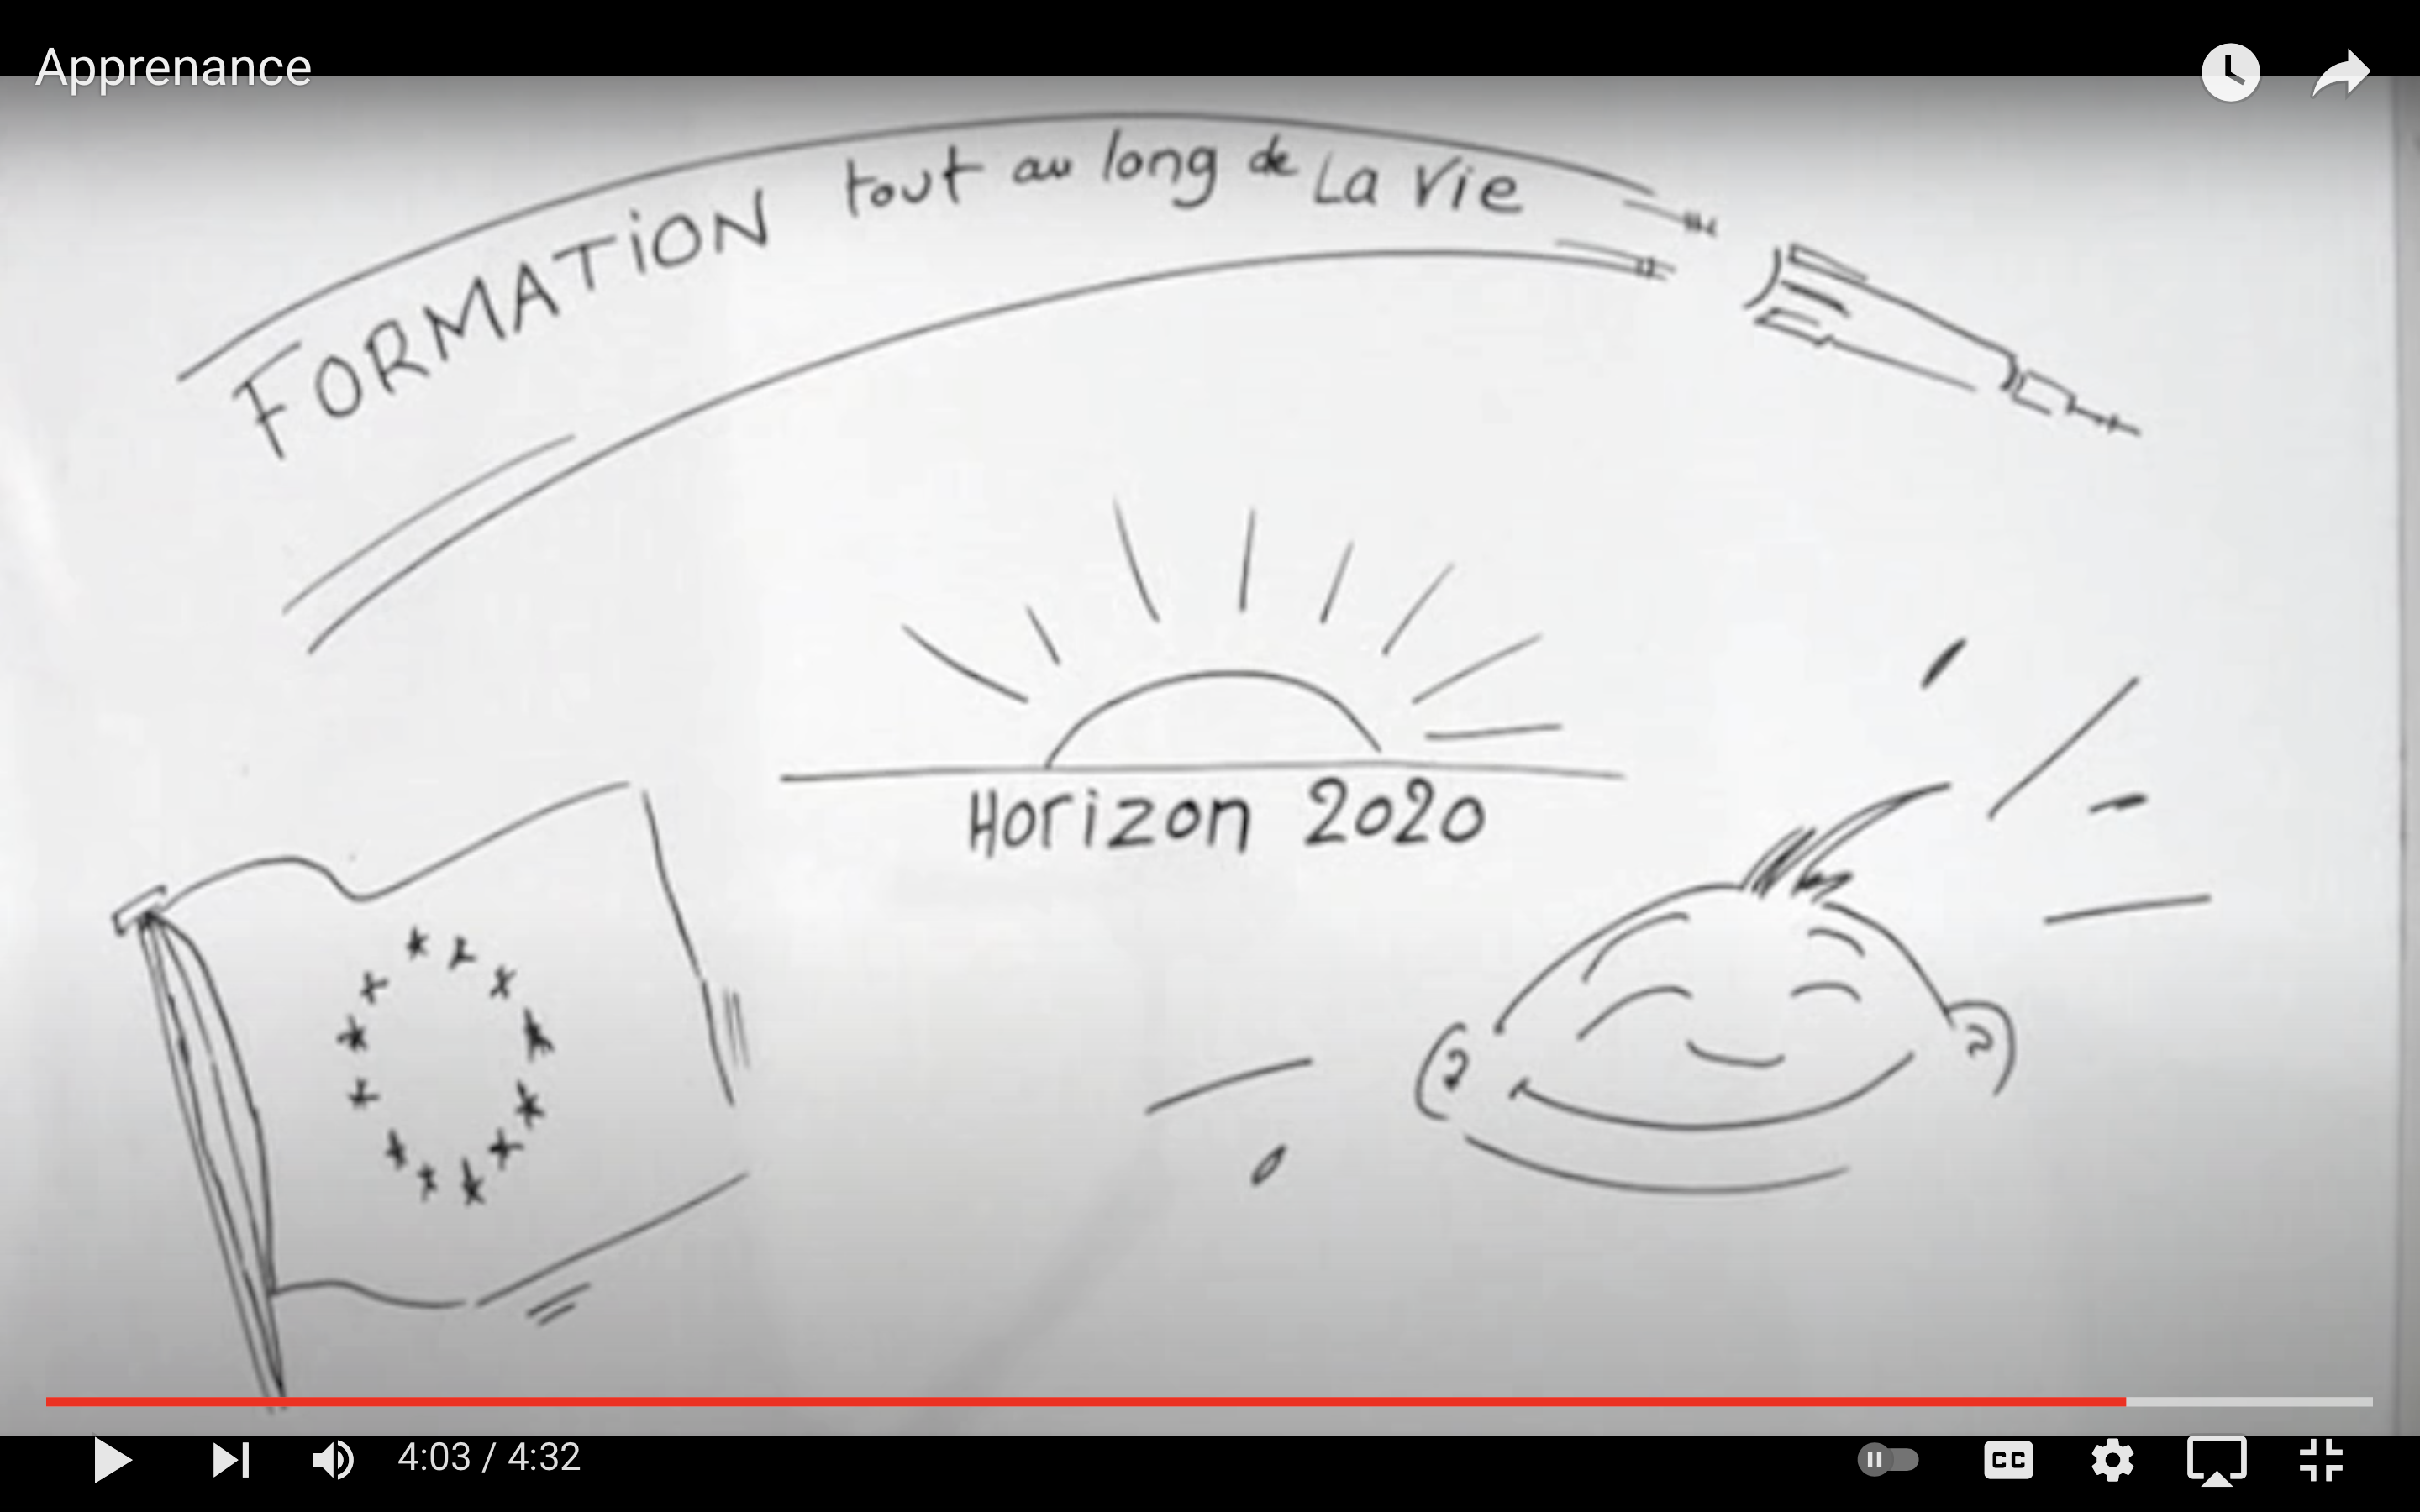 Apprenance
FORMATION tout au long de La Vie
Horizon 2020
4:03 / 4:32
CC